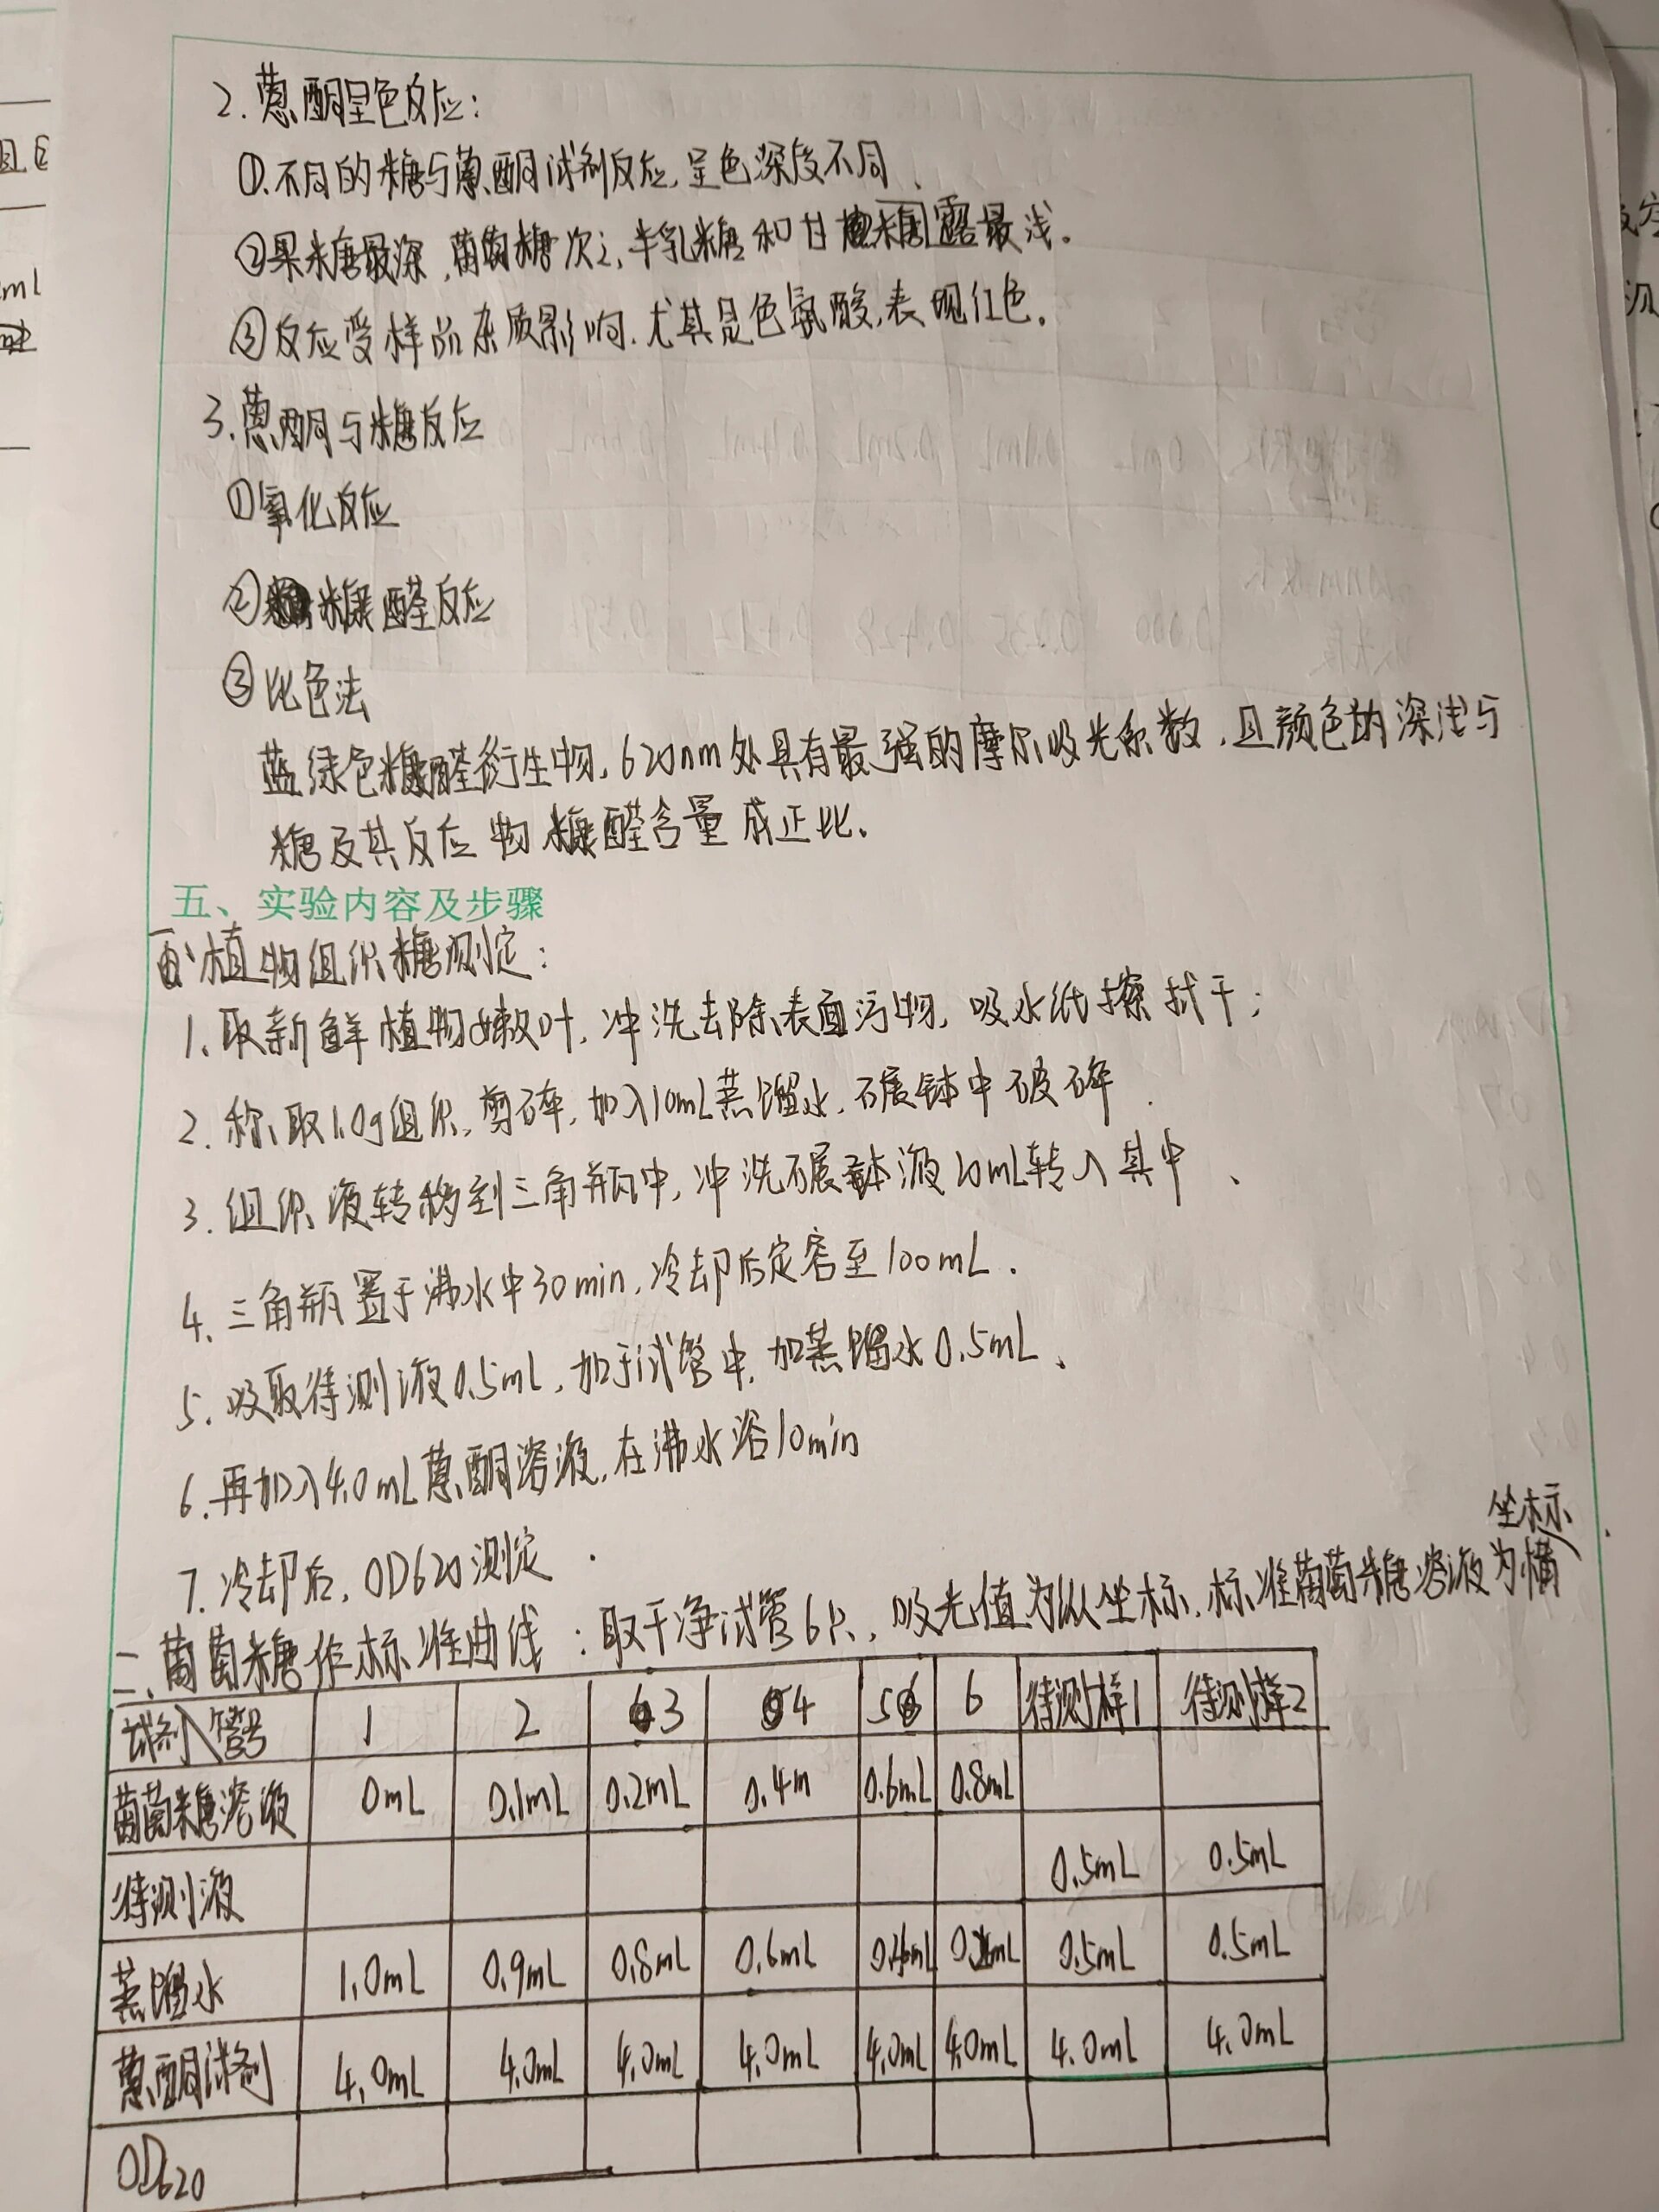 2.蒽酮呈色反应:
①.不同的糖与蒽酮试剂反应,呈色深度不同.
②果糖最深,葡萄糖次之,半乳糖和甘露糖最浅.
③反应受样品杂质影响.尤其是色氨酸,表现红色.
3.蒽酮与糖反应
①氧化反应
②糠醛反应
③比色法
蓝绿色糠醛衍生物,620nm处具有最强的摩尔吸光系数,且颜色的深浅与
糖及其反应物糠醛含量成正比.
五、实验内容及步骤
一、植物组织糖测定:
1.取新鲜植物嫩叶,冲洗去除表面污物,吸水纸擦拭干;
2.称取1.0g组织,剪碎,加入10mL蒸馏水,研钵中破碎.
3.组织液转移到三角瓶中,冲洗液20mL转入其中、
4.三角瓶置于沸水中30min,冷却后定容至100mL.
5.吸取待测液0.5mL,加于试管中,加蒸馏水0.5mL、
6.再加入4.0mL蒽酮溶液,在沸水浴10min
7.冷却后,OD620测定.
二、葡萄糖作标准曲线:取干净试管6只,吸光值为纵坐标,标准葡萄糖溶液为横坐标.
试剂\管号 1 2 3 4 5 6 待测样1 待测样2
葡萄糖溶液 0mL 0.1mL 0.2mL 0.4m 0.6mL 0.8mL
待测液 0.5mL 0.5mL
蒸馏水 1.0mL 0.9mL 0.8mL 0.6mL 0.4mL 0.2mL 0.5mL 0.5mL
蒽酮试剂 4.0mL 4.0mL 4.0mL 4.0mL 4.0mL 4.0mL 4.0mL 4.0mL
OD620